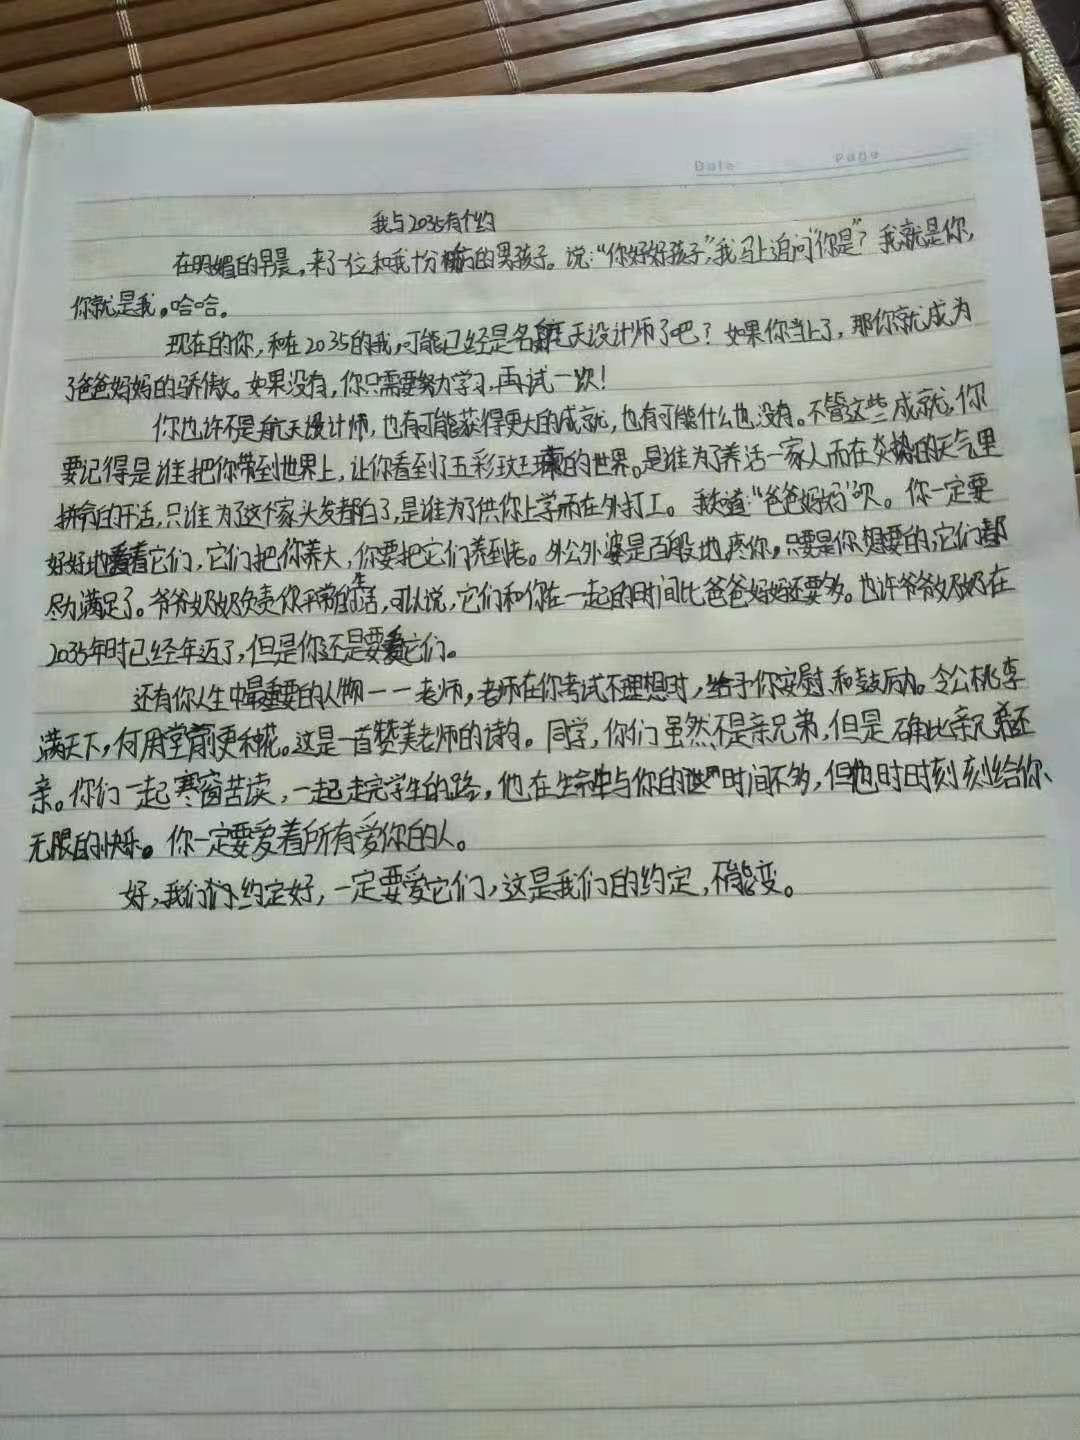 Date Page
我与2035有个约
在明媚的早晨,来了一位和我十分相的男孩子。说:“你好好孩子”,我马上追问“你是”?我就是你,
你就是我。哈哈。
现在的你,和在2035的我,可能已经是名航天设计师了吧?如果你当上了,那你就成为
了爸爸妈妈的骄傲。如果没有,你只需要努力学习,再试一次!
你也许不是航天设计师,也有可能获得更大的成就,也有可能什么也没有。不管这些成就,你
要记得是谁把你带到世界上,让你看到了五彩的世界。是谁为了养活一家人而在炎热的天气里
拼命的干活,只谁为了这个家头发都白了,是谁为了供你上学而在外打工。我知道:“爸爸妈妈”呗。你一定要
好好地看着它们,它们把你养大,你要把它们养到老。外公外婆是百般地疼你,只要是你想要的,它们都
尽力满足了。爷爷奶奶负责你平常的生活,可以说,它们和你在一起的时间比爸爸妈妈还要多。也许爷爷奶奶在
2035年时已经年迈了,但是你还是要爱它们。
还有你人生中最重要的人物一一老师,老师在你考试不理想时,给予你安慰和鼓励。令公桃李
满天下,何用堂前更种花。这是一首赞美老师的诗句。同学,你们虽然不是亲兄弟,但是确比亲兄弟还
亲。你们一起寒窗苦读,一起走完学生的路,他在生命中与你的时间不多,但他时时刻刻给你
无限的快乐。你一定要爱着所有爱你的人。
好,我们们约定好,一定要爱它们,这是我们的约定,不能变。